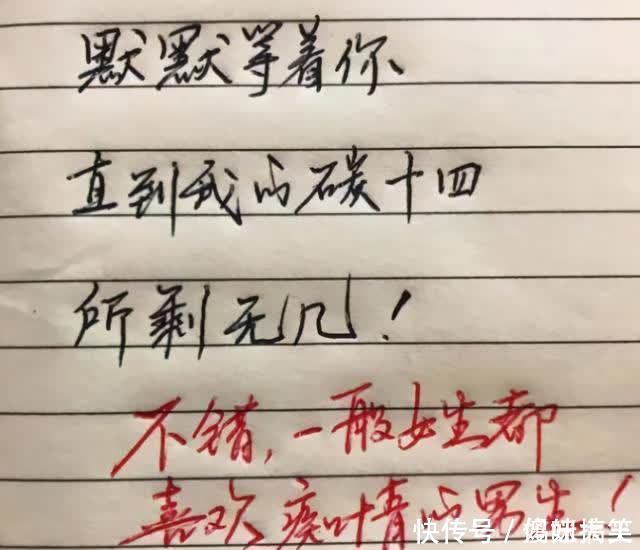 默默等着你、
直到我的碳十四
所剩无几！
不错，一般女生都
喜欢痴情的男生！
快传号／媳咪搞笑